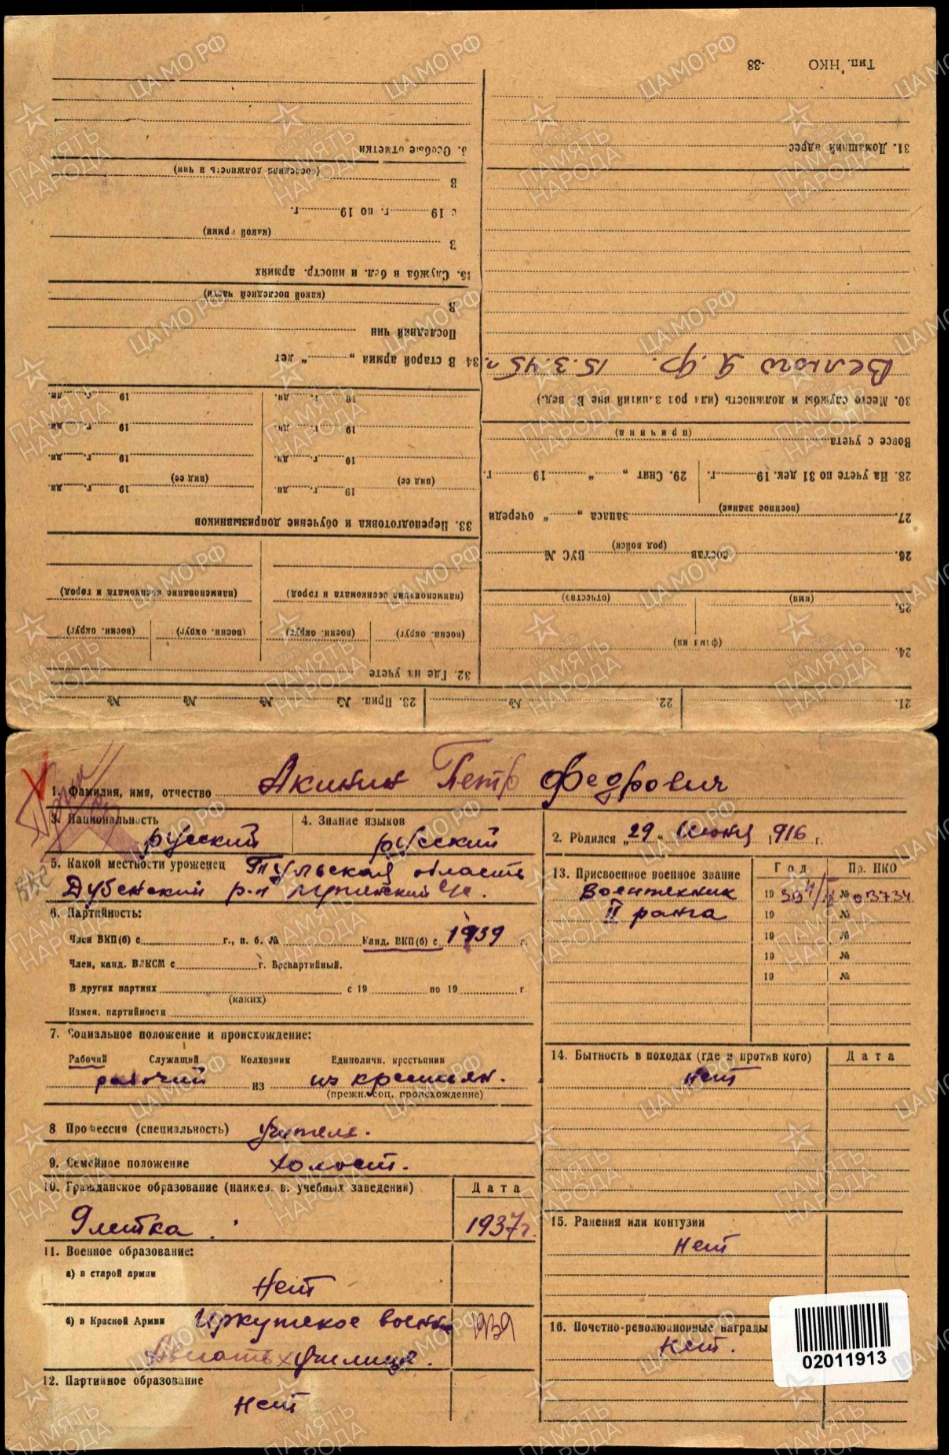 Тип. НКО -38
31. Домашний адрес
30. Место службы и должность (или род занятий вне В. вед.)
15.3.45 г.
28. На учете по 31 дек. 19 г.
29. Снят „ “ 19 г.
(причина)
Вовсе с учета
27. (военное звание) запаса „ “ очереди
26. состав (род войск) ВУС №
25. (имя) (отчество)
24. (фамилия)
21. 22. № 23. Прип. № № № №
3. Особые отметки
(последняя должность и чин)
В
с 19 г. по 19 г.
(какой армии)
В
35. Служба в бел. и иностр. армиях
(какой последней части)
В
Последний чин
34 В старой армии „ “ лет
19 г. дн. 19 г. дн.
19 г. дн. 19 г. дн.
19 г. дн. 19 г. дн.
(вид ее) (вид ее)
19 г. дн. 19 г. дн.
33. Переподготовка и обучение допризывников
(наименование военкомата и город) (наименование военкомата и город)
(воен. округ) (воен. округ) (воен. округ) (воен. округ)
32. Где на учете
1. Фамилия, имя, отчество Акинин Петр Федрович
3. Национальность русский
4. Знание языков русский
5. Какой местности уроженец Тульская область
Дубенский р-н
6. Партийность:
Член ВКП(б) с г., п. б. № Канд. ВКП(б) с 1939 г.
Член, канд. ВЛКСМ с г. Беспартийный.
В других партиях (каких) с 19 по 19 г.
Измен. партийности
7. Социальное положение и происхождение:
Рабочий Служащий Колхозник Единоличн. крестьянин
рабочий из из крестьян.
(прежн. соц. происхождение)
8 Профессия (специальность) учитель.
9. Семейное положение холост.
10. Гражданское образование (наимен. в. учебных заведений) Дата
9 летка. 1937г.
11. Военное образование:
а) в старой армии
Нет
б) в Красной Армии Иркутское военн. 1939
училище.
12. Партийное образование
Нет
2. Родился „29“ июня 1916 г.
13. Присвоенное военное звание Год Пр. НКО
Воентехник 19 39 № 03734
II ранга 19 №
19 №
19 №
19 №
14. Бытность в походах (где и против кого) Дата
Нет
15. Ранения или контузии
Нет
16. Почетно-революционные награды
Нет.
02011913
ЦАМО РФ
ПАМЯТЬ НАРОДА